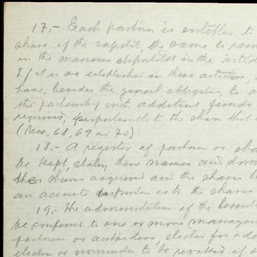 17.- Each partner is entitled to
share of the capital the same to rem
in the manner stipulated in the articl
If it is so established in these articles,
have, besides the general obligation, to a
the partnership with additional funds
required, proportionately to the share that
(Secs, 68, 69 a 70)
18.- A register of partners or sha
be kept, stating their names and dom
the shares acquired and the shares t
an account as to the shares
19. The administration of the limite
be conferred to one or more manager
partners or outsiders elected for a de